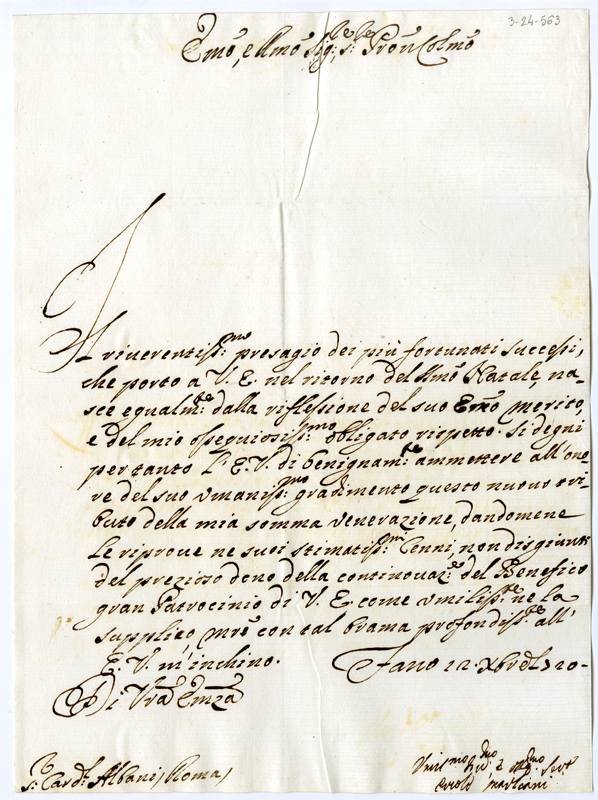 3-24-563
Emō, e Rmō Sig:re, Sig:re Prōn Colmō
Il riuerentiss:mo presagio dei più fortunati successi,
che porto a V. E. nel ritorno del Smō Natale, na-
sce egualm:te dalla riflessione del suo Emō merito,
e del mio ossequiosiss:mo obligato rispetto. Si degni
per tanto l'E. V. di benignam:te ammettere all'ono-
re del suo vmaniss:mo gradimento questo nuouo tri-
buto della mia somma venerazione, dandomene
le riproue ne suoi stimatiss:mi Cenni, non disgiunti
del prezioso dono della continouaz:e del Benefico
gran Patrocinio di V. E. come vmiliss:te ne la
supplico, mrē con tal brama profondiss:te all'
E. V. m'inchino. Fano 22. Xbre 1720-
Di Vrā Emzā
S:r Card:l Albani, Roma,
Vmil:mo Diu:mo e obb:mo Ser:re
Marliani